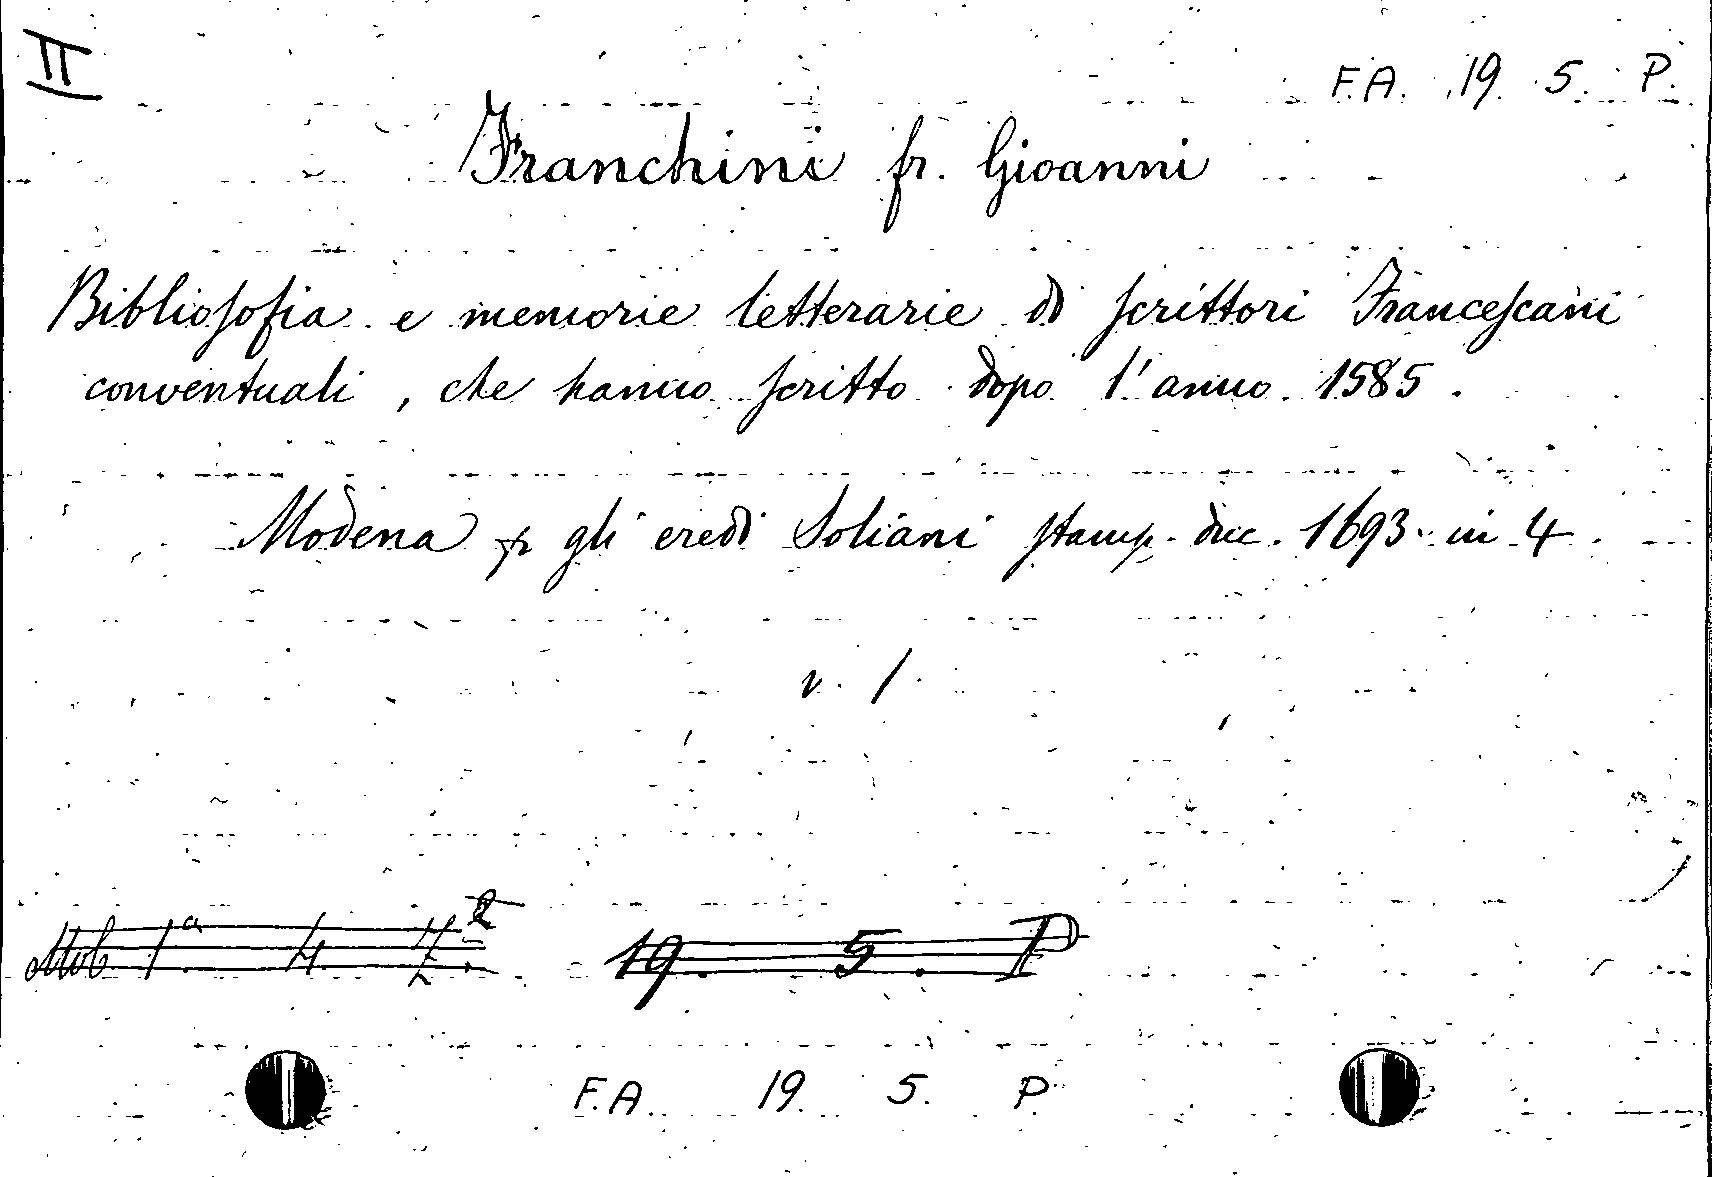 II
F.A. 19. 5. P.
Franchini fr. Gioanni
Bibliosofia e memorie letterarie di scrittori Francescani
conventuali, che hanno scritto dopo l'anno 1585.
Modena p gli eredi Soliani stamp. duc. 1693. in 4
v. 1.
Mob 1a 4 7. 2 19. 5. P
F.A. 19. 5. P